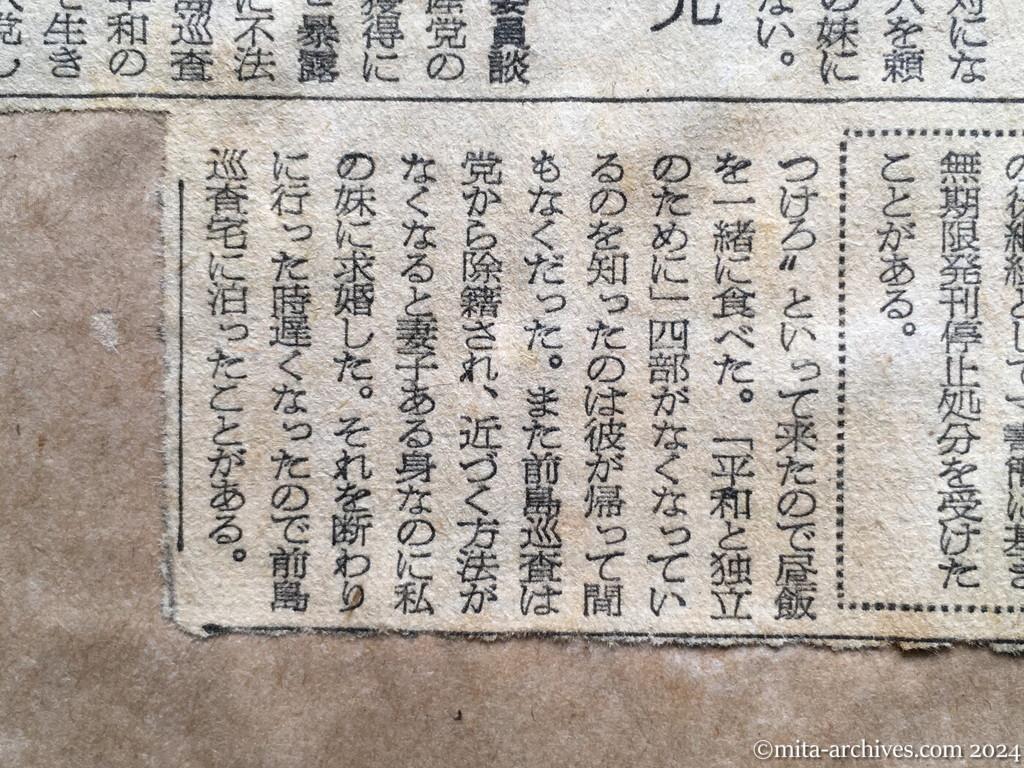 対にな
人を頼
の妹に
ない。
元
委員談
産党の
獲得に
と暴露
に不法
島巡査
平和の
と生き
入党し
無期限発刊停止処分を受けた
ことがある。
つけろ〟といって来たので昼飯
を一緒に食べた。「平和と独立
のために」四部がなくなってい
るのを知ったのは彼が帰って間
もなくだった。また前島巡査は
党から除籍され、近づく方法が
なくなると妻子ある身なのに私
の妹に求婚した。それを断わり
に行った時遅くなったので前島
巡査宅に泊ったことがある。
©mita-archives.com 2024